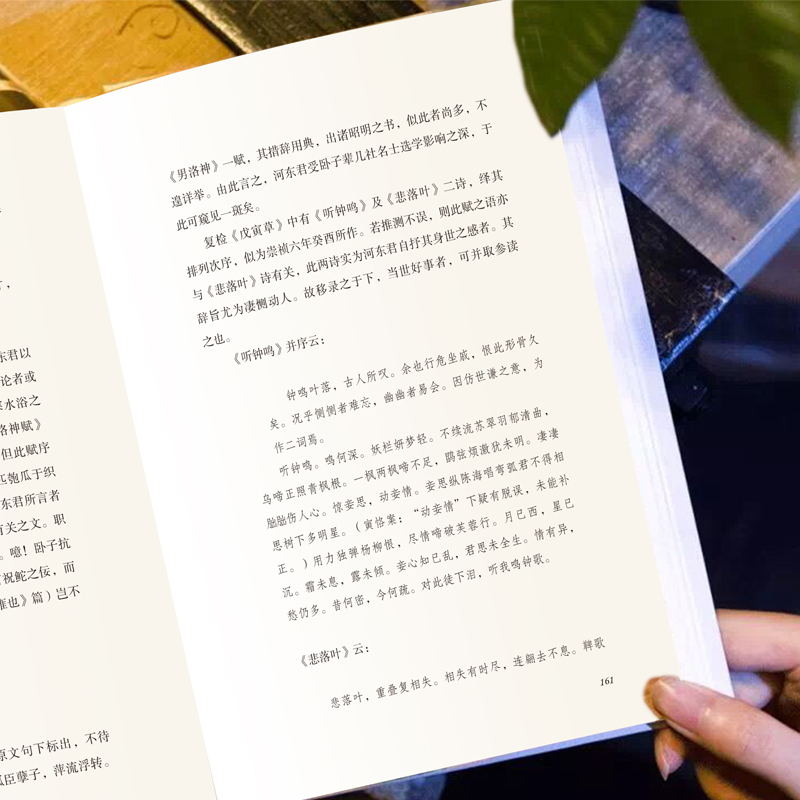 东君以
论者或
水浴之
洛神赋》
但此赋序
匹匏瓜于织
东君所言者
有关之文。职
。噫！卧子抗
祝鮀之佞，而
雍也》篇）岂不
原文句下标出，不待
孤臣孽子，萍流浮转。
《男洛神》一赋，其措辞用典，出诸昭明之书，似此者尚多，不
遑详举。由此言之，河东君受卧子辈几社名士选学影响之深，于
此可窥见一斑矣。
复检《戊寅草》中有《听钟鸣》及《悲落叶》二诗，绎其
排列次序，似为崇祯六年癸酉所作。若推测不误，则此赋之语亦
与《悲落叶》诗有关，此两诗实为河东君自抒其身世之感者。其
辞旨尤为凄恻动人。故移录之于下，当世好事者，可并取参读
之也。
《听钟鸣》并序云：
钟鸣叶落，古人所叹。余也行危坐戚，恨此形骨久
矣。况乎恻恻者难忘，幽幽者易会。因仿世谦之意，为
作二词焉。
听钟鸣。鸣何深。妖栏妍梦轻。不续流苏翠羽郁清曲，
乌啼正照青枫根。一枫两枫啼不足，鹍弦烦激犹未明。凄凄
朏朏伤人心。惊妾思，动妾情。妾思纵陈海唱弯弧君不得相
思树下多明星。（寅恪案：“动妾情”下疑有脱误，未能补
正。）用力独弹杨柳恨，尽情啼破芙蓉行。月已西，星已
沉。霜未息，露未倾。妾心知已乱，君思未全生。情有异，
愁仍多。昔何密，今何疏。对此徒下泪，听我鸣钟歌。
《悲落叶》云：
悲落叶，重叠复相失。相失有时尽，连翩去不息。鞞歌
161